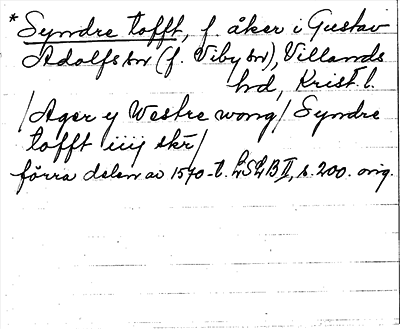 * Syndre tofft, f. åker i Gustav
Adolfs sn (f. Viby sn), Villands
hd, Krist. l.
/Ager y Westre wong/ Syndre
tofft iiij skr/
förra delen av 1570-t. LSLB II, s. 200. orig.